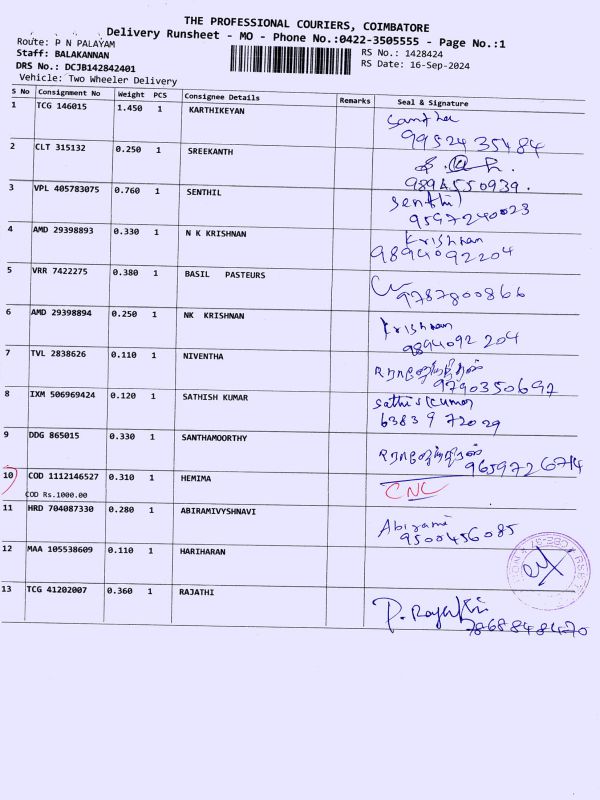 THE PROFESSIONAL COURIERS, COIMBATORE
Delivery Runsheet - MO - Phone No.:0422-3505555 - Page No.:1
Route: P N PALAYAM
RS No.: 1428424
Staff: BALAKANNAN
RS Date: 16-Sep-2024
DRS No.: DCJB142842401
Vehicle: Two Wheeler Delivery
S No Consignment No Weight PCS Consignee Details Remarks Seal & Signature
1 TCG 146015 1.450 1 KARTHIKEYAN
9952435484
2 CLT 315132 0.250 1 SREEKANTH
9894550939.
3 VPL 405783075 0.760 1 SENTHIL Senthil
9597240023
4 AMD 29398893 0.330 1 N K KRISHNAN Krishnan
9894092204
5 VRR 7422275 0.380 1 BASIL PASTEURS
9787800866
6 AMD 29398894 0.250 1 NK KRISHNAN Krishnan
9894092 204
7 TVL 2838626 0.110 1 NIVENTHA
9790350697
8 IXM 506969424 0.120 1 SATHISH KUMAR Sathis Kumar
63839 72029
9 DDG 865015 0.330 1 SANTHAMOORTHY
9659726714
10 COD 1112146527 0.310 1 HEMIMA CNC
COD Rs.1000.00
11 HRD 704087330 0.280 1 ABIRAMIVYSHNAVI Abirami
9500456085
12 MAA 105538609 0.110 1 HARIHARAN
13 TCG 41202007 0.360 1 RAJATHI P. Rajathi
7868848470